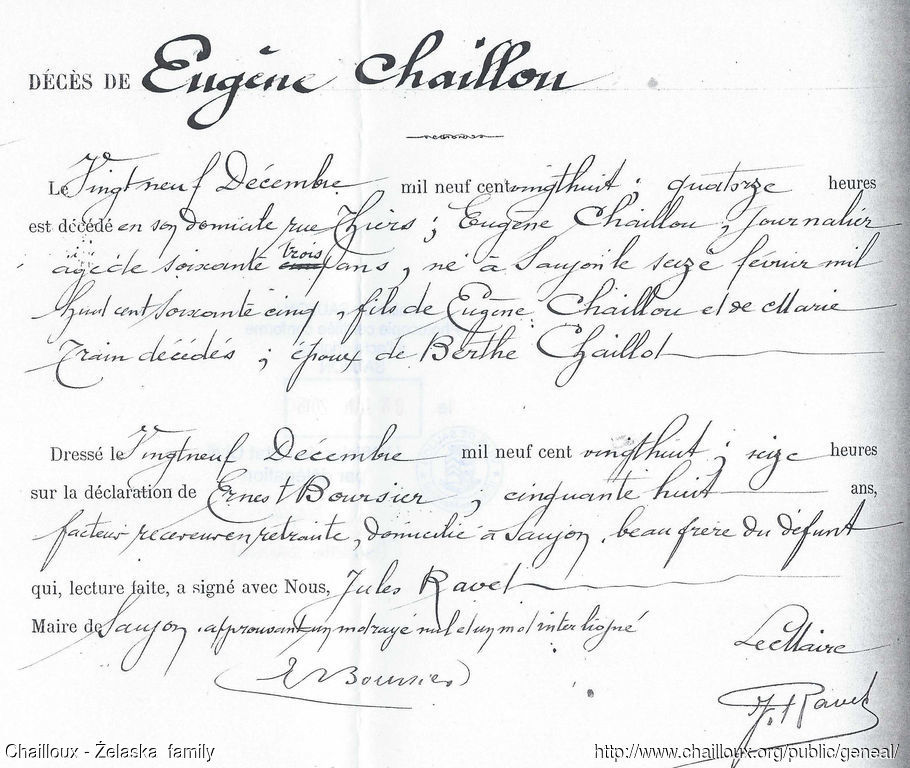 DÉCÈS DE Eugène Chaillou
Le Vingt neuf Décembre mil neuf cent vingt huit ; quatorze heures
est décédé en son domicile rue Thiers ; Eugène Chaillou, Journalier
agé de soixante cinq trois ans, né à Saujon le seize février mil
huit cent soixante cinq, fils de Eugène Chaillou et de Marie
Train décédés ; époux de Berthe Chaillot
Dressé le Vingt neuf Décembre mil neuf cent vingt huit ; seize heures
sur la déclaration de Ernest Boursier, cinquante huit ans,
facteur receveur en retraite, domicilié à Saujon, beau frère du défunt
qui, lecture faite, a signé avec Nous, Jules Ravet
Maire de Saujon. approuvant un mot rayé nul et un mot interligné
Le Maire
E Boursier
J. Ravet
Chailloux - Żelaska family
http://www.chailloux.org/public/geneal/